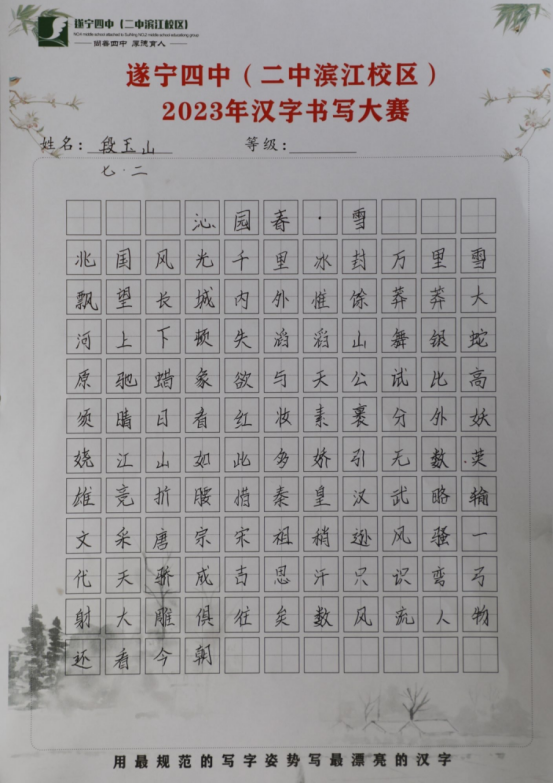 遂宁四中(二中滨江校区)
尚善四中 厚德育人
遂宁四中(二中滨江校区)
2023年汉字书写大赛
姓名：段玉山 等级：
七·二
沁园春·雪
北国风光千里冰封万里雪
飘望长城内外惟馀莽莽大
河上下顿失滔滔山舞银蛇
原驰蜡象欲与天公试比高
须晴日看红妆素裹分外妖
娆江山如此多娇引无数英
雄竞折腰惜秦皇汉武略输
文采唐宗宋祖稍逊风骚一
代天骄成吉思汗只识弯弓
射大雕俱往矣数风流人物
还看今朝
用最规范的写字姿势写最漂亮的汉字